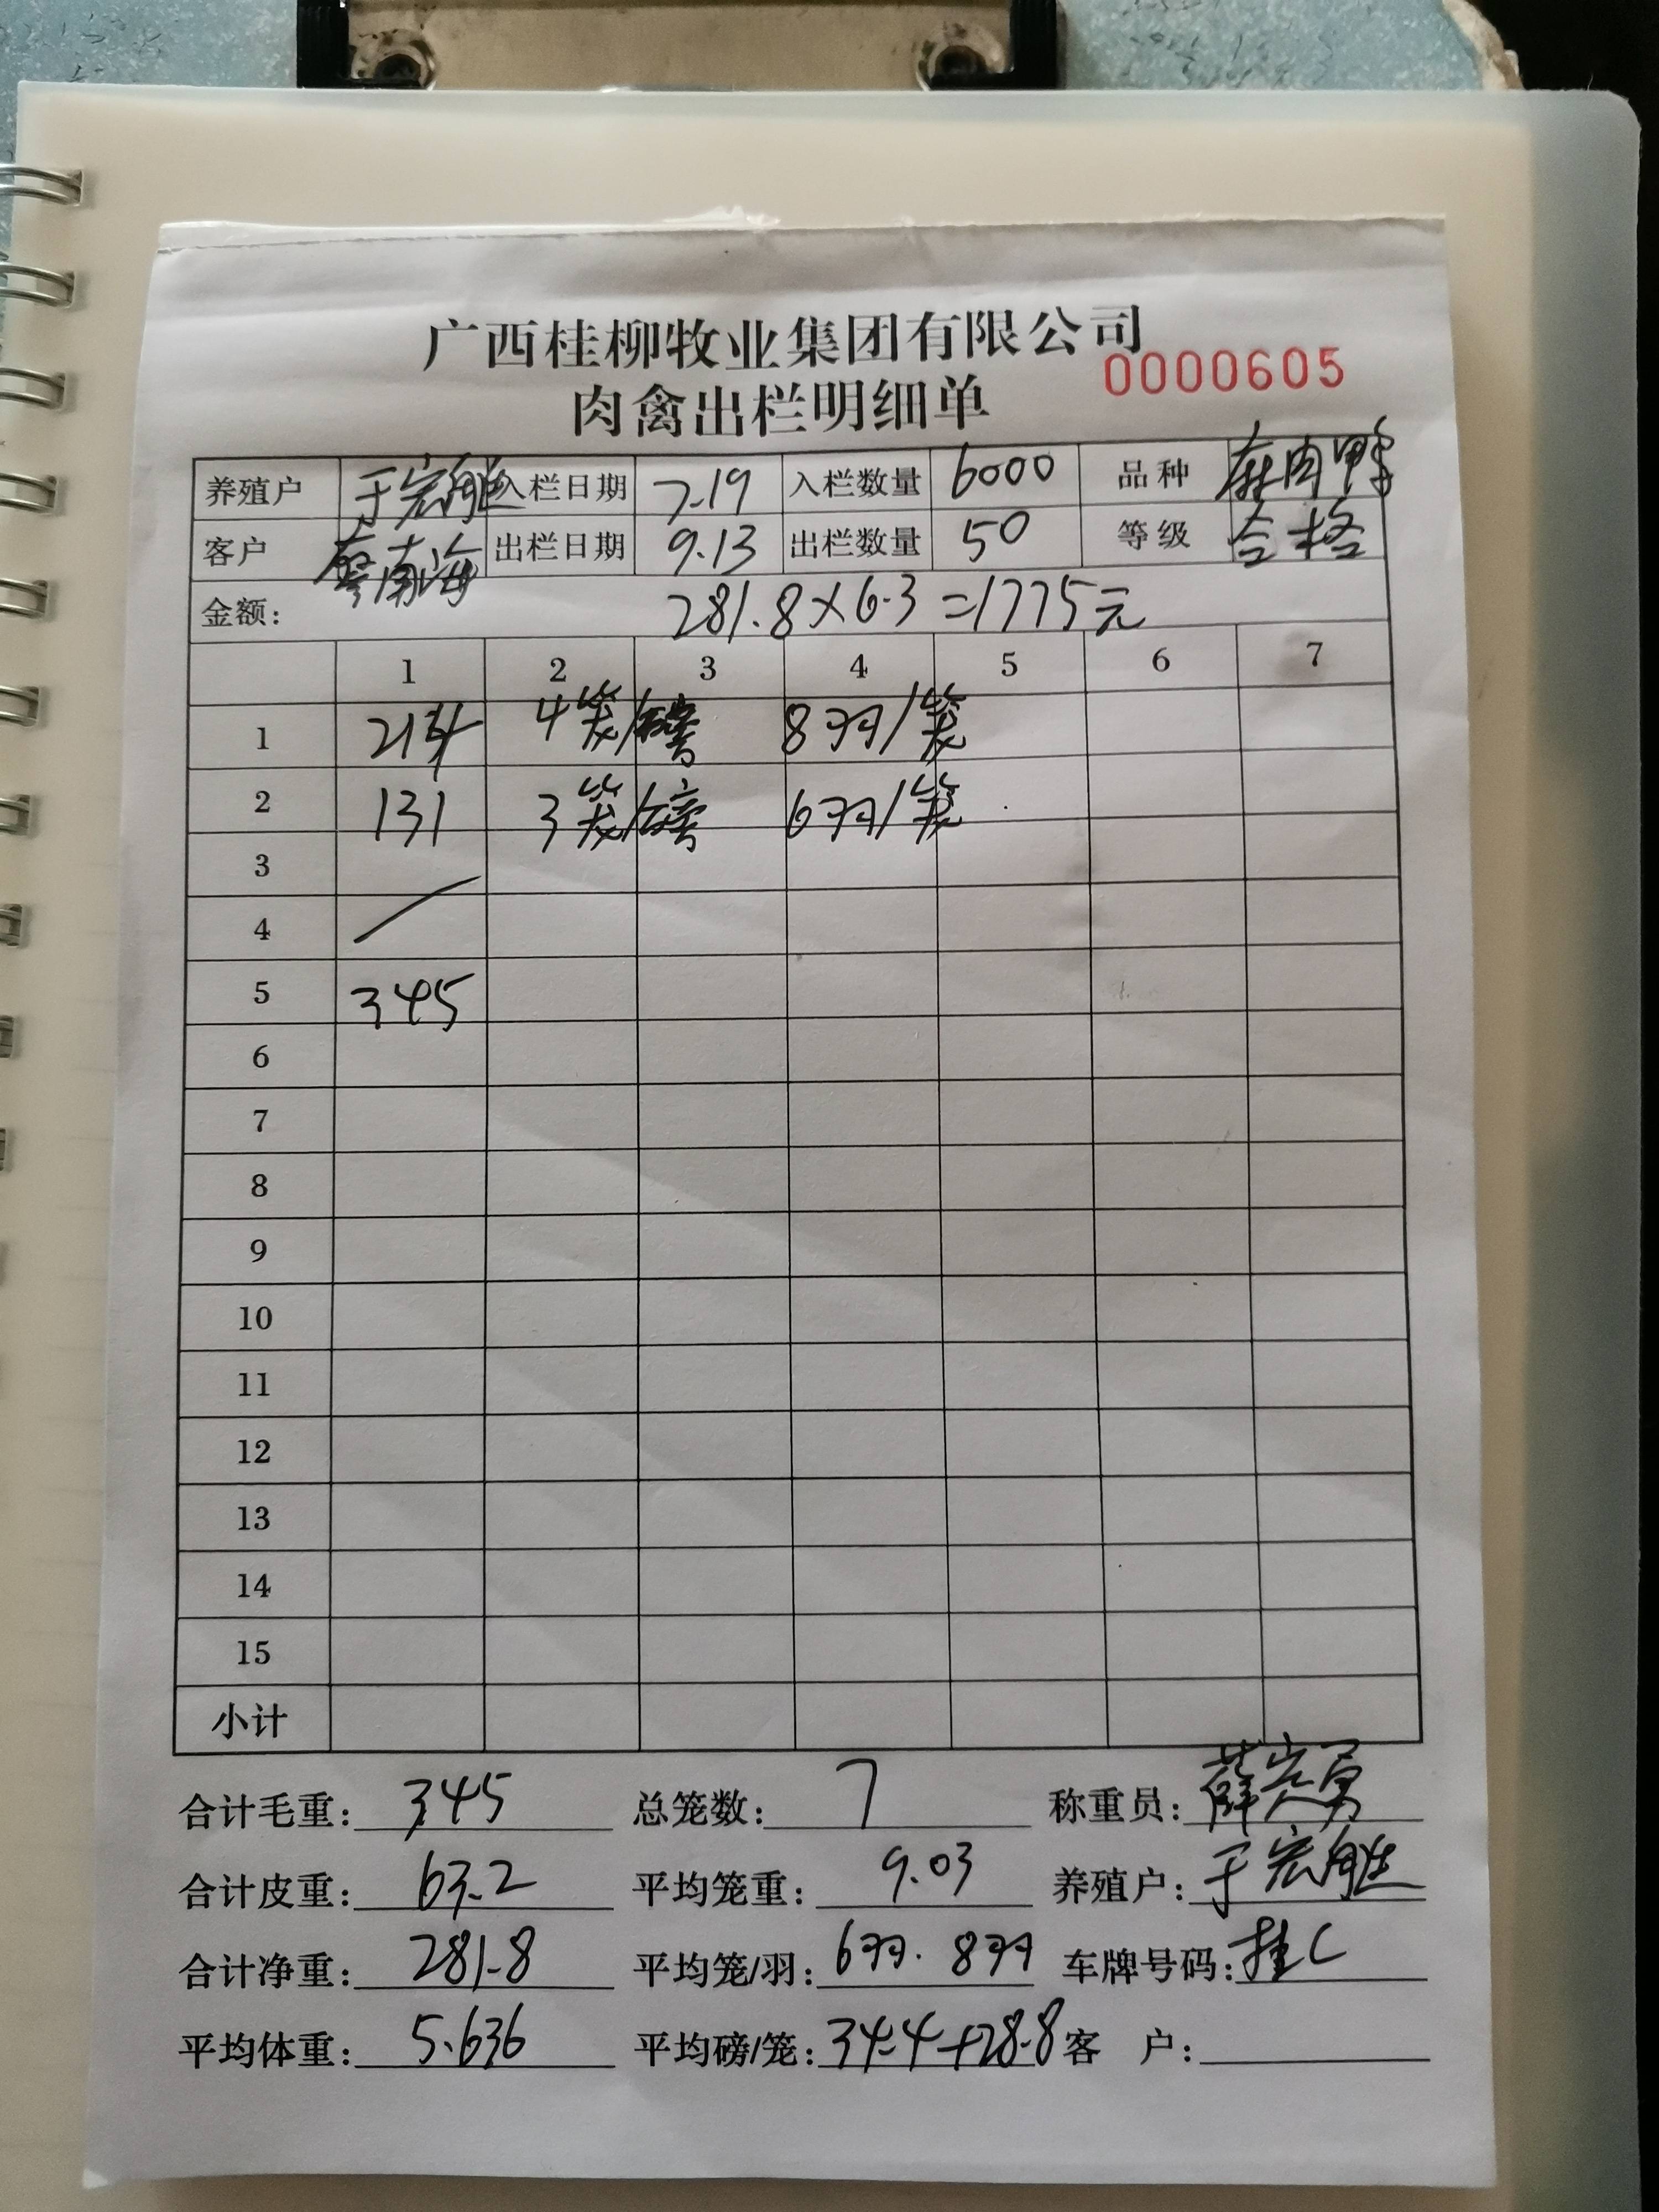 广西桂柳牧业集团有限公司
0000605
肉禽出栏明细单
养殖户 于宏胜 入栏日期 7.19 入栏数量 6000 品种 麻肉鸭
客户 廖南海 出栏日期 9.13 出栏数量 50 等级 合格
金额: 281.8×6.3=1775元
1 2 3 4 5 6 7
1 214 4笼/磅 8羽/笼
2 131 3笼/磅 6羽/笼
3
4
5 345
6
7
8
9
10
11
12
13
14
15
小计
合计毛重: 345 总笼数: 7 称重员: 薛宾勇
合计皮重: 63.2 平均笼重: 9.03 养殖户: 于宏胜
合计净重: 281.8 平均笼/羽: 6羽. 8羽 车牌号码: 桂C
平均体重: 5.636 平均磅/笼: 34.4+28.8 客 户: